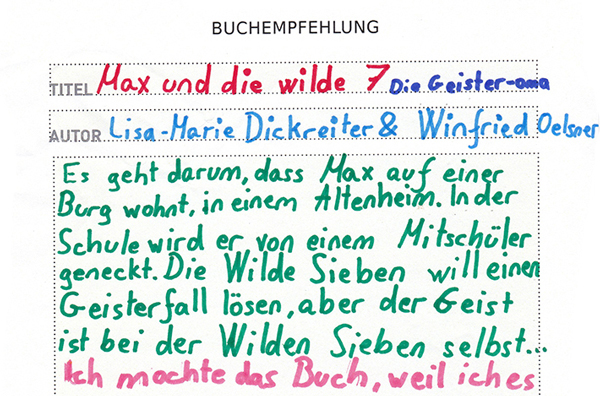 BUCHEMPFEHLUNG
TITEL Max und die wilde 7 Die Geister-oma
AUTOR Lisa-Marie Dickreiter & Winfried Oelsner
Es geht darum, dass Max auf einer
Burg wohnt, in einem Altenheim. In der
Schule wird er von einem Mitschüler
geneckt. Die Wilde Sieben will einen
Geisterfall lösen, aber der Geist
ist bei der Wilden Sieben selbst...
Ich mochte das Buch, weil ich es